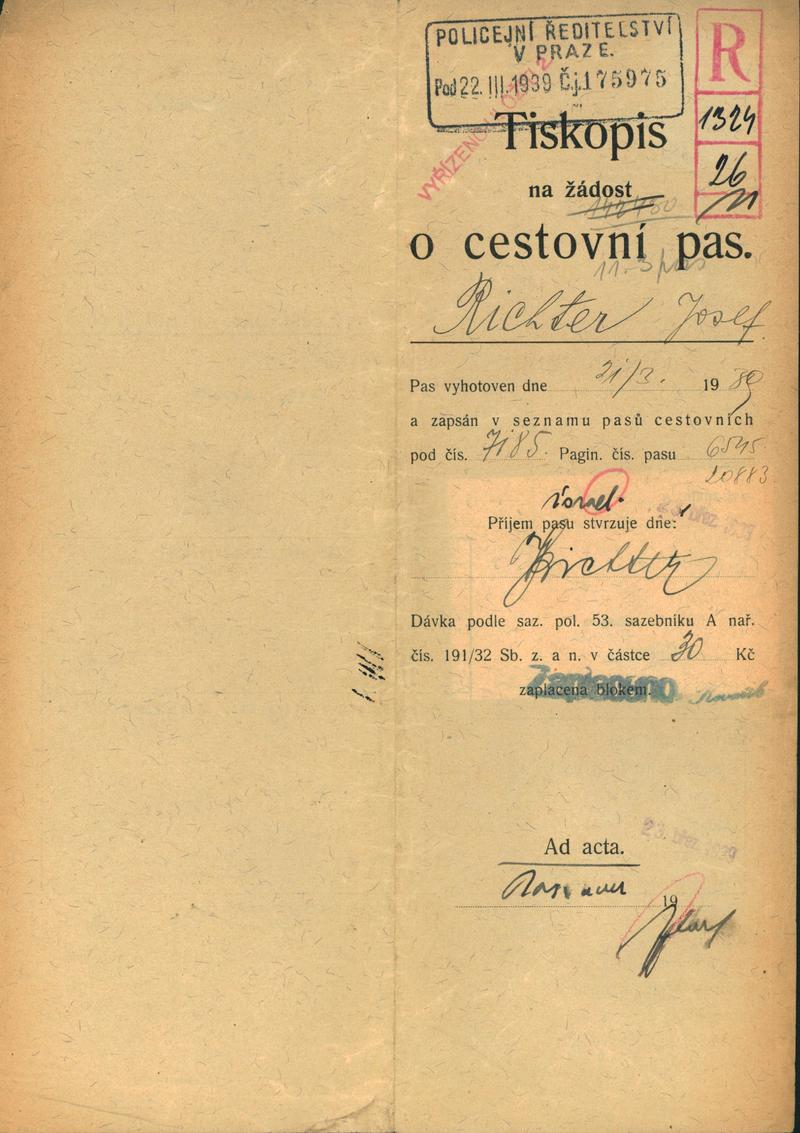 POLICEJNÍ ŘEDITELSTVÍ
V PRAZE.
Pod 22. III. 1939 Č.j. 175975
R
1324
26
Tiskopis
na žádost
o cestovní pas.
Richter Josef
Pas vyhotoven dne 21/3. 19 39
a zapsán v seznamu pasů cestovních
pod čís. 7185. Pagin. čís. pasu 6545
20883
israel.
Příjem pasu stvrzuje dne:
Richter
Dávka podle saz. pol. 53. sazebníku A nař.
čís. 191/32 Sb. z. a n. v částce 30 Kč
zaplacena blokem.
Zaplaceno
23. břez. 1939
Ad acta.
19